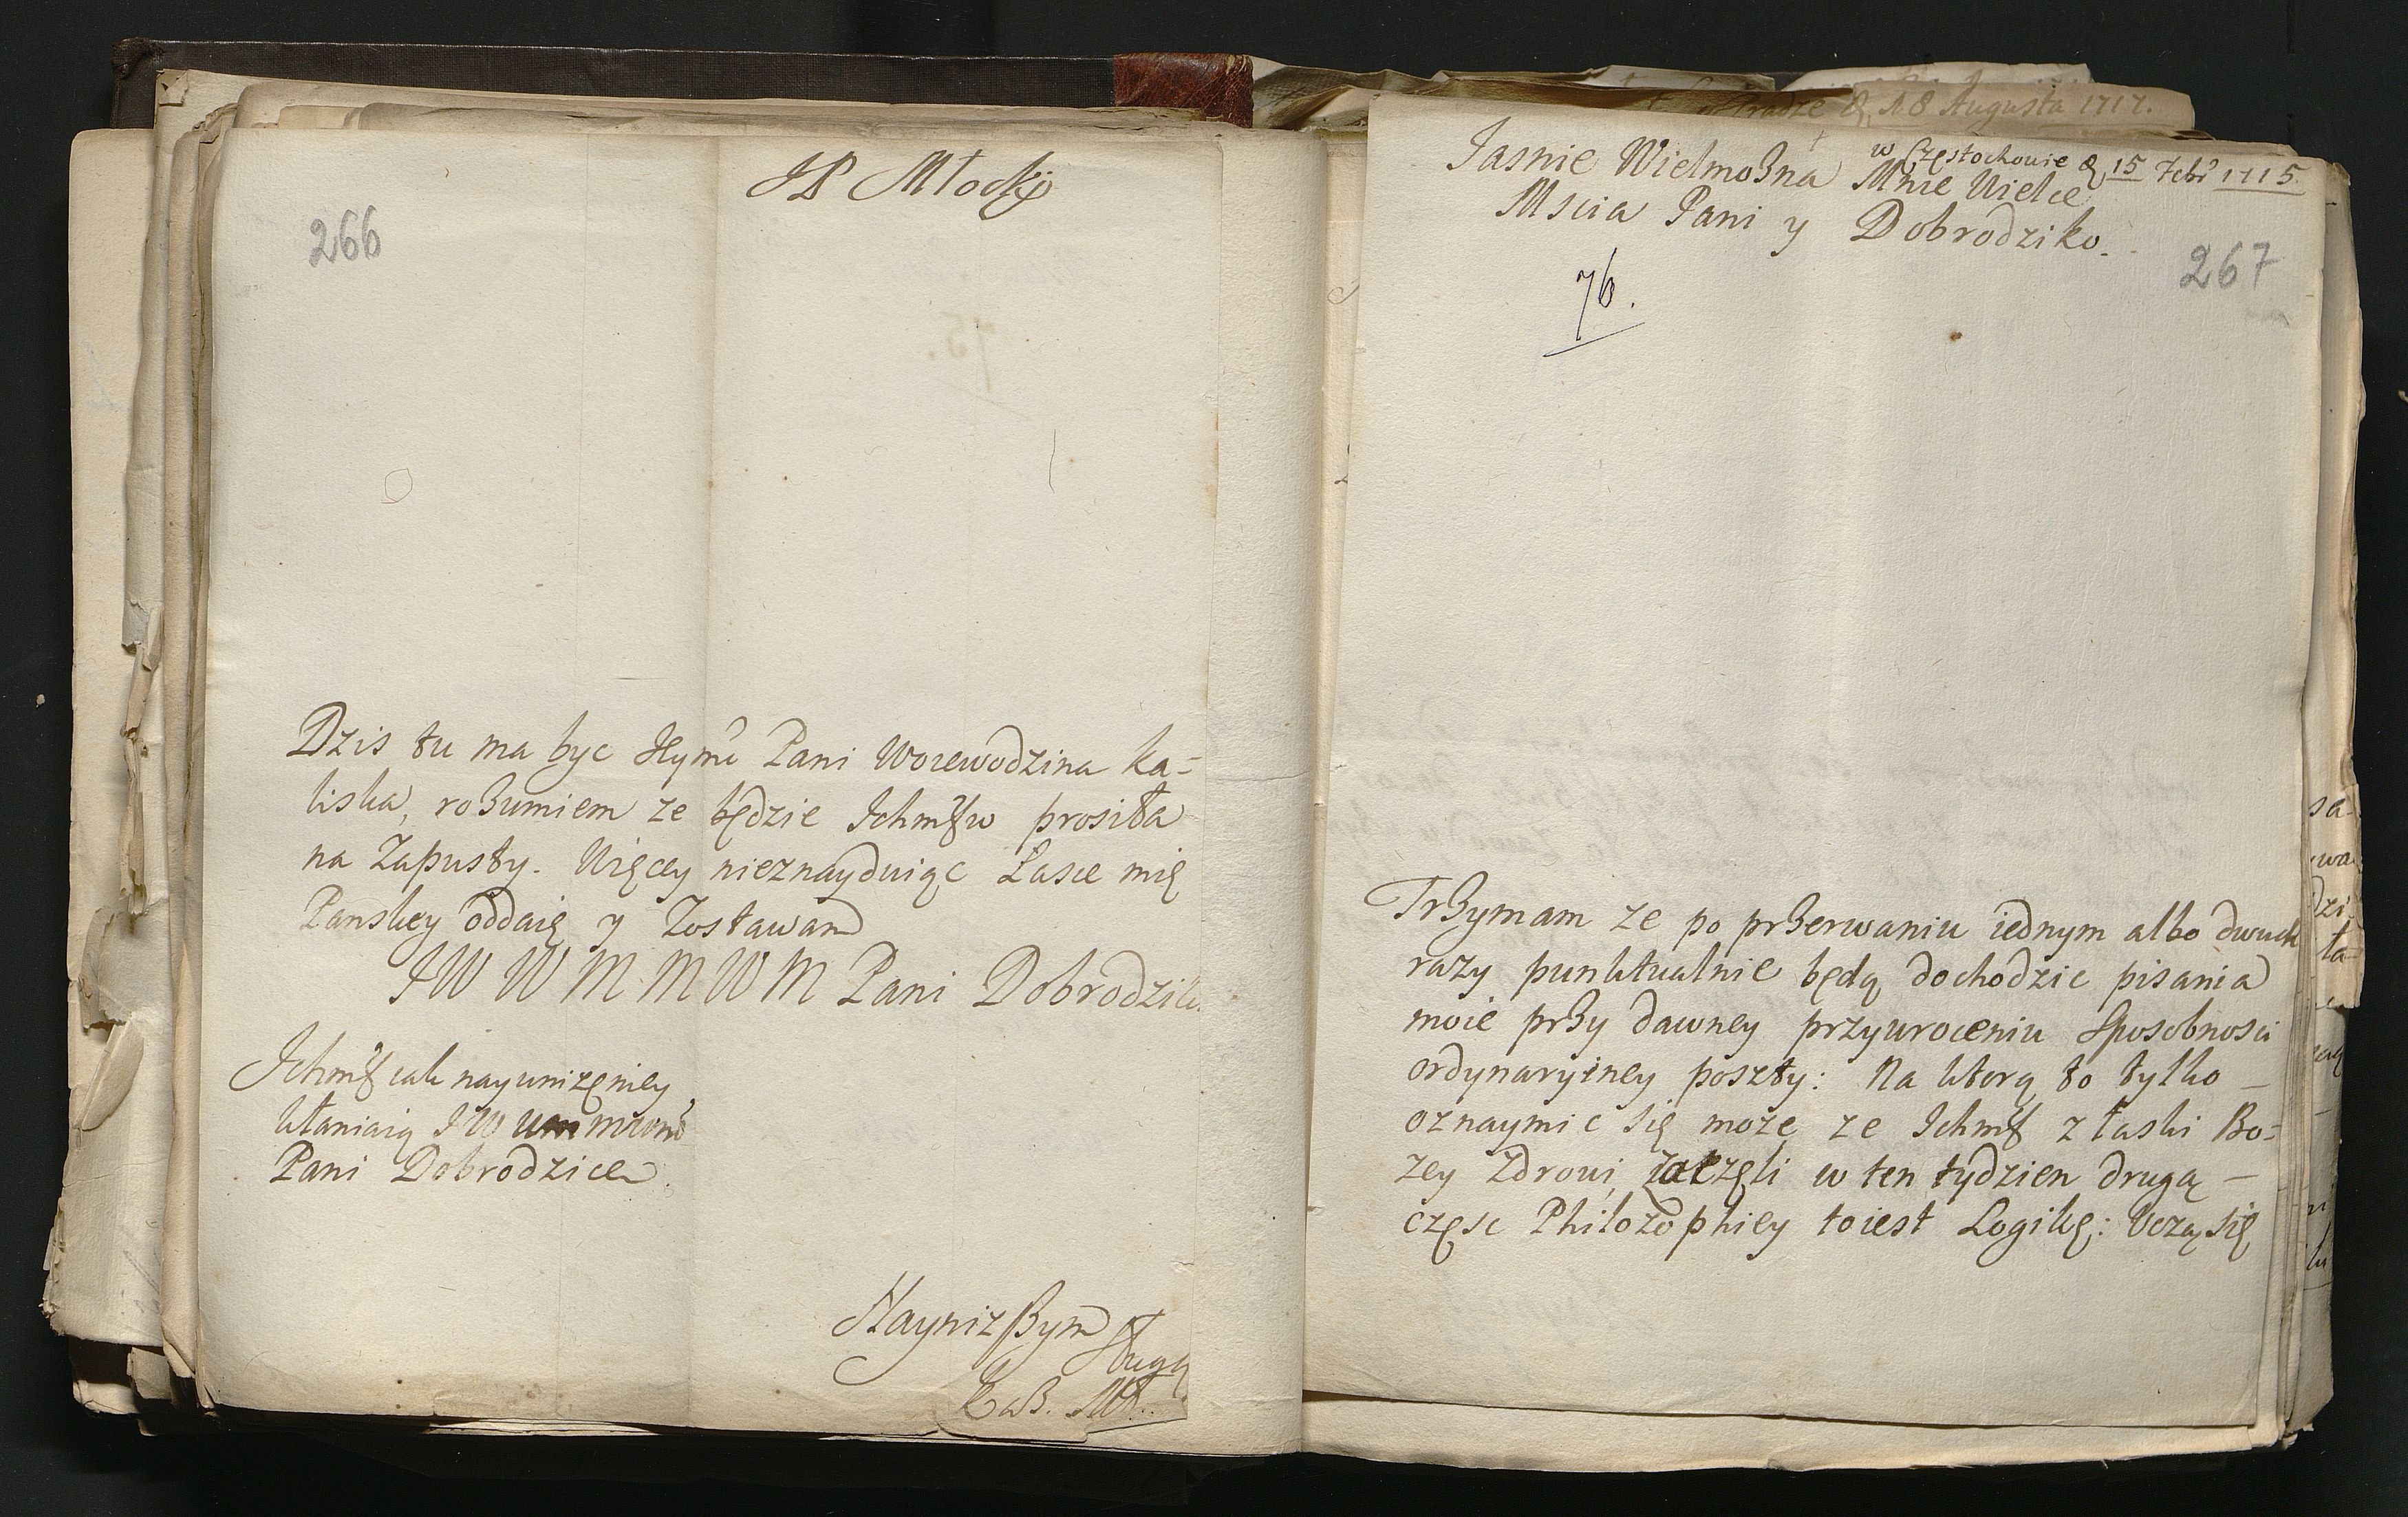 JP Młocki
266
Dzis tu ma byc Jeymć Pani Woiewodzina ka-
liska, rozumiem ze będzie Ichmśw prosiła
na Zapusty. Więcey nieznayduiąc Łasce mię
Panskey oddaię y Zostawam
JW W M M W M Pani Dobrodziki
Ichmść iak nayunizęniey
kłaniaią JW
Pani Dobrodzice
Nayniższym
sługą
w Częstochowie 15 1715.
Jasnie Wielmozna Mnie Wielce
Mscia Pani y Dobrodziko.
76.
267
Trzymam ze po przerwaniu iednym albo dwuch
razy punktualnie będą dochodzic pisania
moie przy dawney przywroceniu sposobnosci
ordynaryiney poszty: Na ktorą to tylko
oznaymic się moze ze Ichmść z łaski Bo-
zey Zdrowi, zaczęli w ten tydzien drugą
częsc Philozophiey toiest Logikę: Uczą się
18 Augusta 1717.